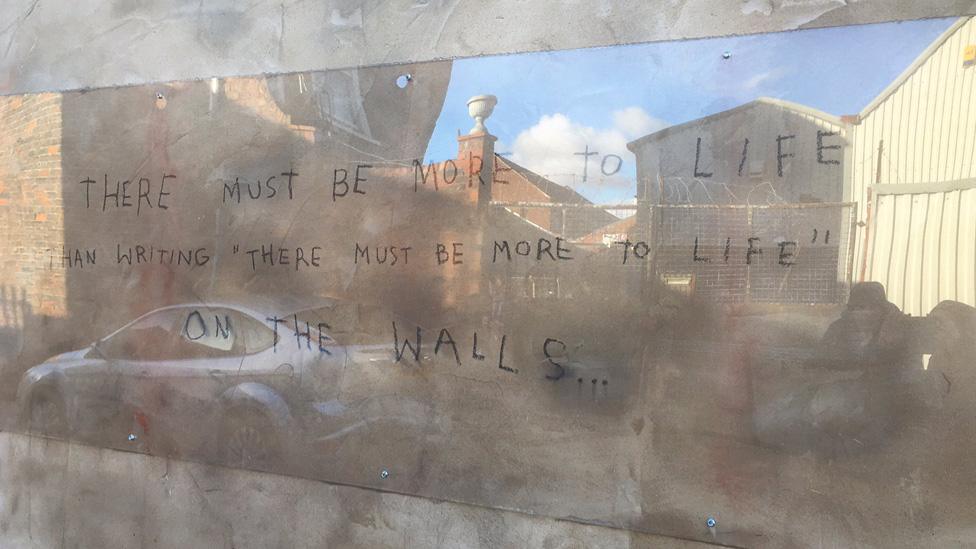 THERE MUST BE MORE TO LIFE
THAN WRITING "THERE MUST BE MORE TO LIFE"
ON THE WALLS...